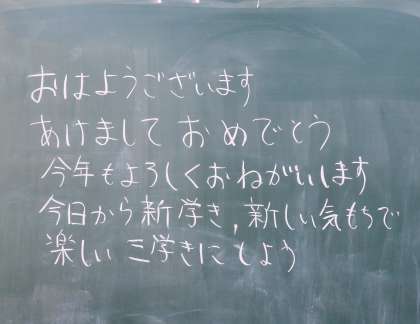 おはようございます
あけまして おめでとう
今年もよろしくおねがいします
今日から新学き,新しい気もちで
楽しい 三学きにしよう